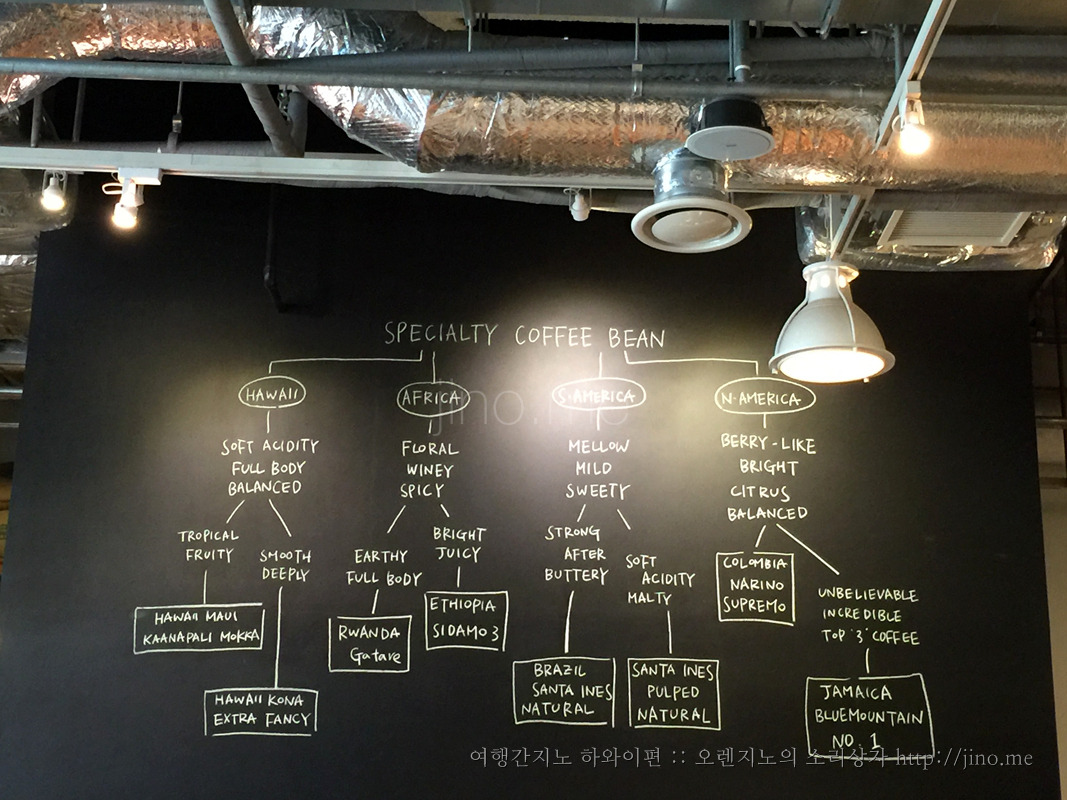 SPECIALTY COFFEE BEAN
HAWAII
SOFT ACIDITY
FULL BODY
BALANCED
TROPICAL
FRUITY
HAWAII MAUI
KAANAPALI MOKKA
SMOOTH
DEEPLY
HAWAII KONA
EXTRA FANCY
AFRICA
FLORAL
WINEY
SPICY
EARTHY
FULL BODY
RWANDA
Gatare
BRIGHT
JUICY
ETHIOPIA
SIDAMO 3
S·AMERICA
MELLOW
MILD
SWEETY
STRONG
AFTER
BUTTERY
BRAZIL
SANTA INES
NATURAL
SOFT
ACIDITY
MALTY
SANTA INES
PULPED
NATURAL
N·AMERICA
BERRY-LIKE
BRIGHT
CITRUS
BALANCED
COLOMBIA
NARINO
SUPREMO
UNBELIEVABLE
INCREDIBLE
TOP '3' COFFEE
JAMAICA
BLUEMOUNTAIN
NO. 1
jino.me
여행간지노 하와이편 :: 오렌지노의 소리상자 http://jino.me